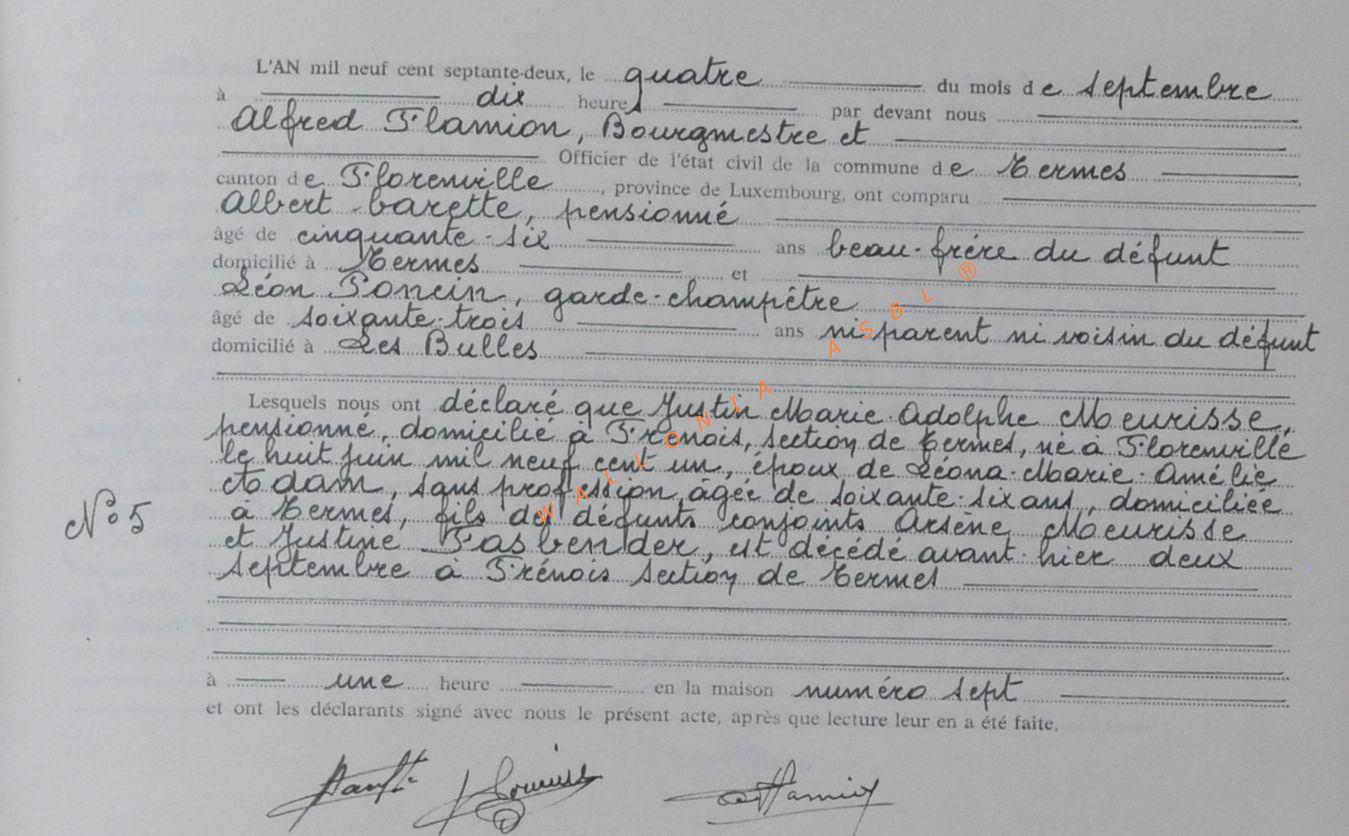 L'AN mil neuf cent septante-deux, le quatre du mois de septembre
à dix heures par devant nous
Alfred Flamion, Bourgmestre et
Officier de l'état civil de la commune de Termes
canton de Florenville, province de Luxembourg, ont comparu
Albert barette, pensionné
âgé de cinquante-six ans beau-frère du défunt
domicilié à Termes et
Léon Poncin, garde-champêtre
âgé de soixante-trois ans ni parent ni voisin du défunt
domicilié à Les Bulles
Lesquels nous ont déclaré que Justin Marie Adolphe Meurisse,
pensionné, domicilié à Frenois, section de Termes, né à Florenville
le huit juin mil neuf cent un, époux de Léona-Marie-Amélie
, sans profession, âgée de soixante-six ans, domiciliée
N° 5
à Termes, fils des défunts conjoints Arsène Meurisse
et Justine Fasbender, est décédé avant-hier deux
septembre à Frénois section de Termes
à une heure en la maison numéro sept
et ont les déclarants signé avec nous le présent acte, après que lecture leur en a été faite.
WALLONIA ASBL ®